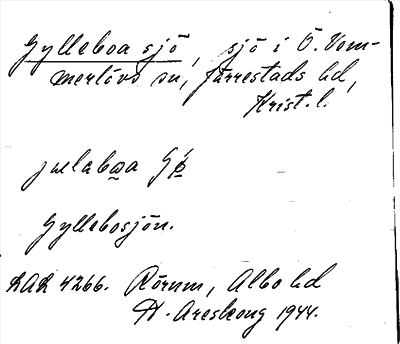 Gylleboa sjö, sjö i Ö. Vem-
merlövs sn, Järrestads hd,
Krist. l.
jyllaboa
Gyllebosjön.
LAL 4266. Rörum, Albo hd
H. Areskoug 1944.